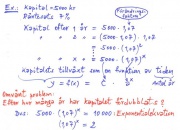 Ex.: Kapital = 5000 kr
Räntesats 7 %
Förändrings-
Kapital efter 1 år = 5000 · 1,07
5000 · 1,07²
5000 · 1,07³
x
Kapitalets tillväxt som en funktion av tiden
y = f(x) = C · aˣ
Omvänt problem:
Efter hur många år har kapitalet fördubblats?
Dvs: 5000 · 1,07ˣ = 10000 Exponentialekvation
1,07ˣ = 2